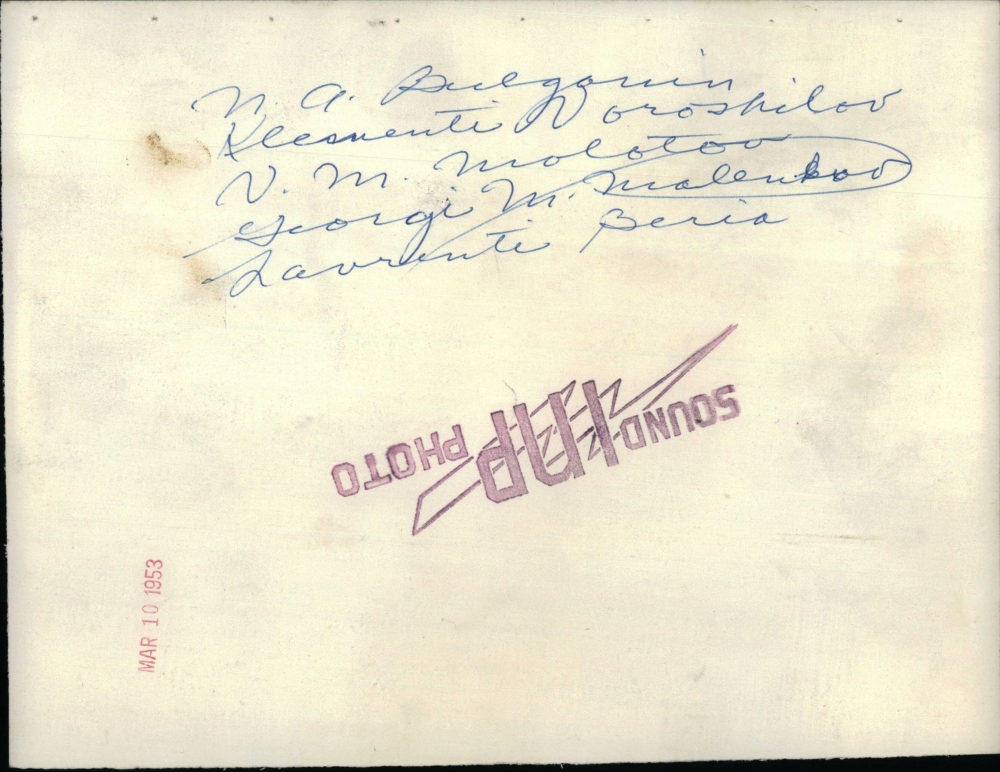 N. A. Bulganin
Klementi Voroshilov
V. M. Molotov
Georgi M. Malenkov
Lavrenti Beria
SOUND INP PHOTO
MAR 10 1953